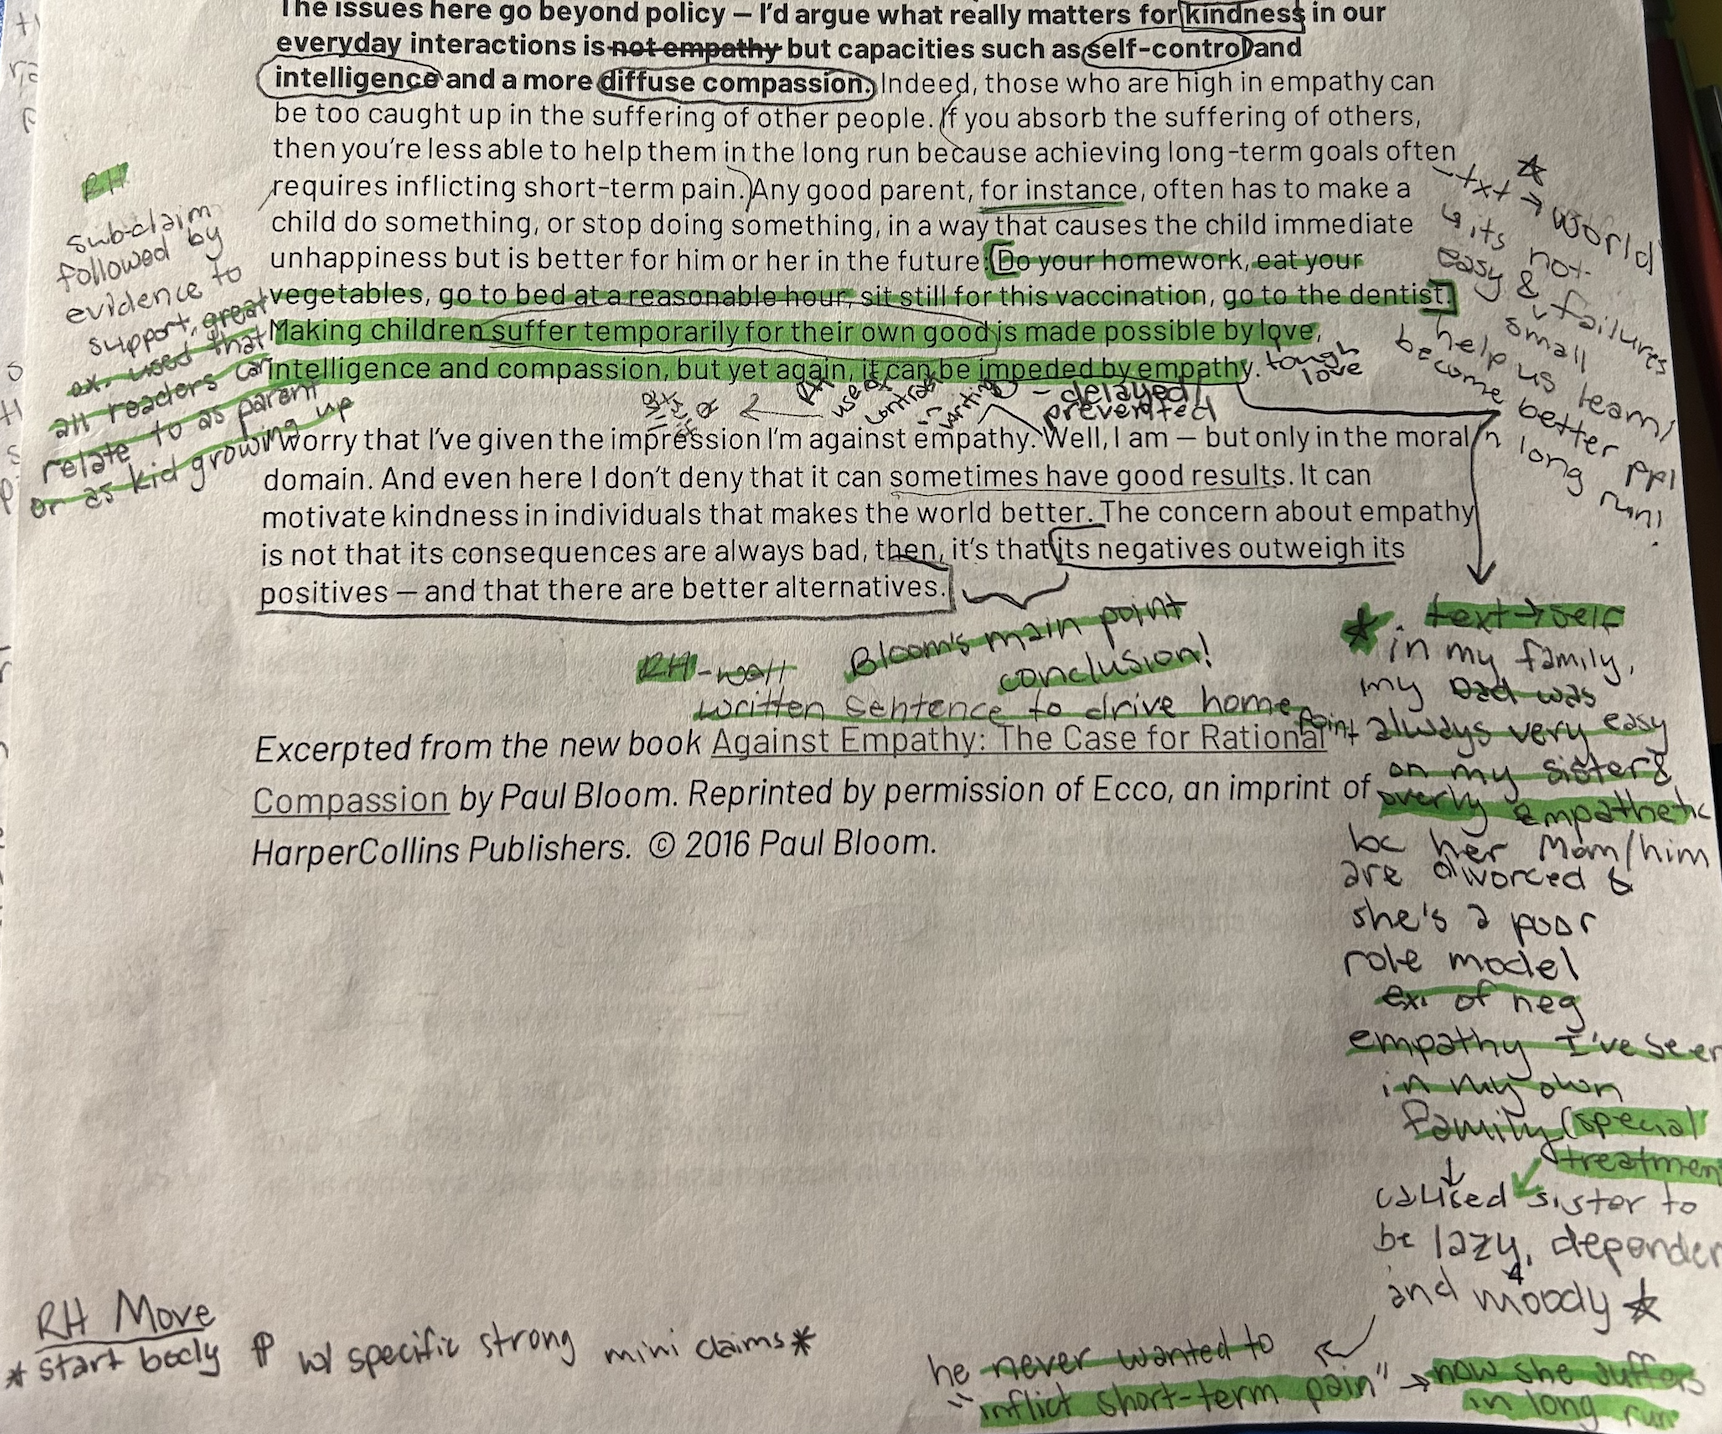 The issues here go beyond policy — I'd argue what really matters for kindness in our
everyday interactions is not empathy but capacities such as self-control and
intelligence and a more diffuse compassion. Indeed, those who are high in empathy can
be too caught up in the suffering of other people. If you absorb the suffering of others,
then you're less able to help them in the long run because achieving long-term goals often
requires inflicting short-term pain. Any good parent, for instance, often has to make a
child do something, or stop doing something, in a way that causes the child immediate
unhappiness but is better for him or her in the future: Do your homework, eat your
vegetables, go to bed at a reasonable hour, sit still for this vaccination, go to the dentist.
Making children suffer temporarily for their own good is made possible by love,
intelligence and compassion, but yet again, it can be impeded by empathy.
I worry that I've given the impression I'm against empathy. Well, I am — but only in the moral
domain. And even here I don't deny that it can sometimes have good results. It can
motivate kindness in individuals that makes the world better. The concern about empathy
is not that its consequences are always bad, then, it's that its negatives outweigh its
positives — and that there are better alternatives.
Excerpted from the new book Against Empathy: The Case for Rational
Compassion by Paul Bloom. Reprinted by permission of Ecco, an imprint of
HarperCollins Publishers. © 2016 Paul Bloom.
RH
sub-claim
followed by
evidence to
support, great
ex. used that
all readers can
relate to as parent
or as kid growing up
tough
love
- delayed/
prevented
RH
use of
contrast
in writing
txt → world
↳ its not
easy & failures
small
help us learn/
become better ppl
in long run!
RH - well
written sentence to drive home
point
Bloom's main point
conclusion!
text → self
in my family,
my Dad was
always very easy
on my sister &
overly empathetic
bc her Mom/him
are divorced &
she's a poor
role model
ex. of neg
empathy I've seen
in my own
family (special
treatmen
↓
caused sister to
be lazy, depender
and moody
he never wanted to
"inflict short-term pain" → now she suffers
in long run
RH Move
* start body ¶ w/ specific strong mini claims *